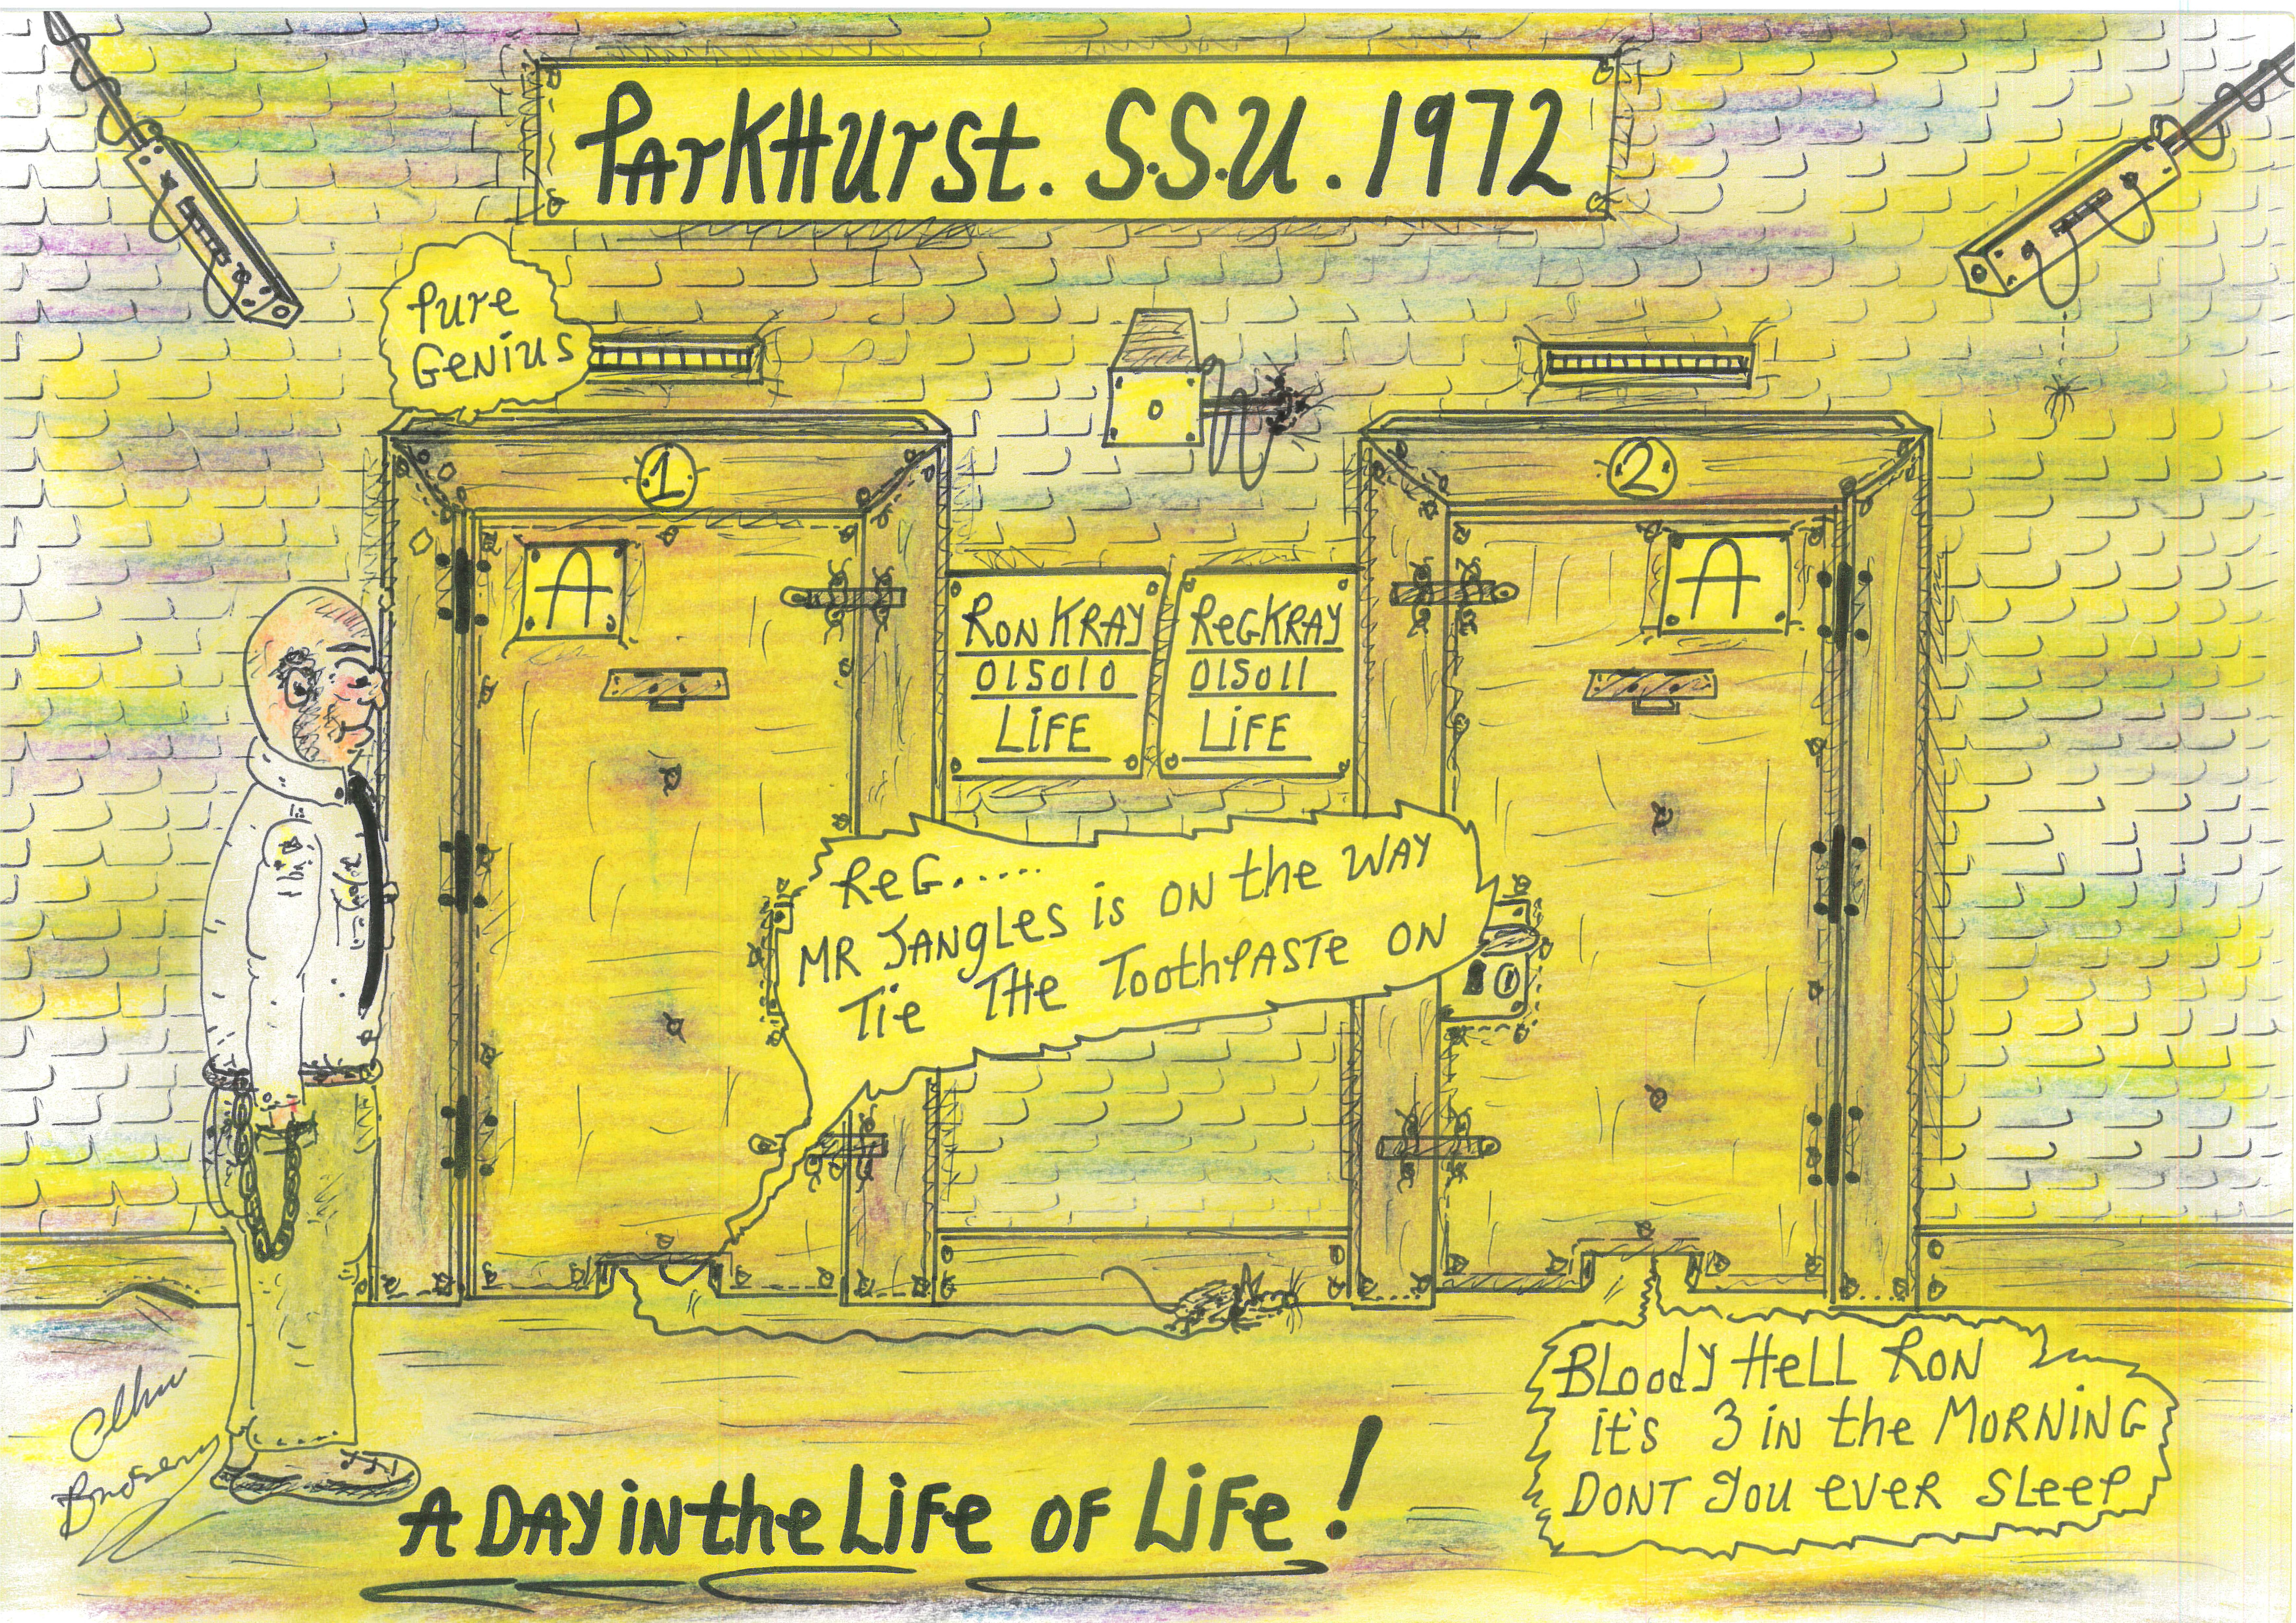 PARKHURST. S.S.U. 1972
Pure
GENIUS
1
2
A
A
RON KRAY
015010
LIFE
REG KRAY
015011
LIFE
REG.....
MR JANGLES is ON the WAY
Tie THe ToothPASTe ON
10
BLoody HeLL RON
it's 3 iN the MORNiNG
DONT you eVeR SLeeP
A DAY iN the LiFe OF LiFe!